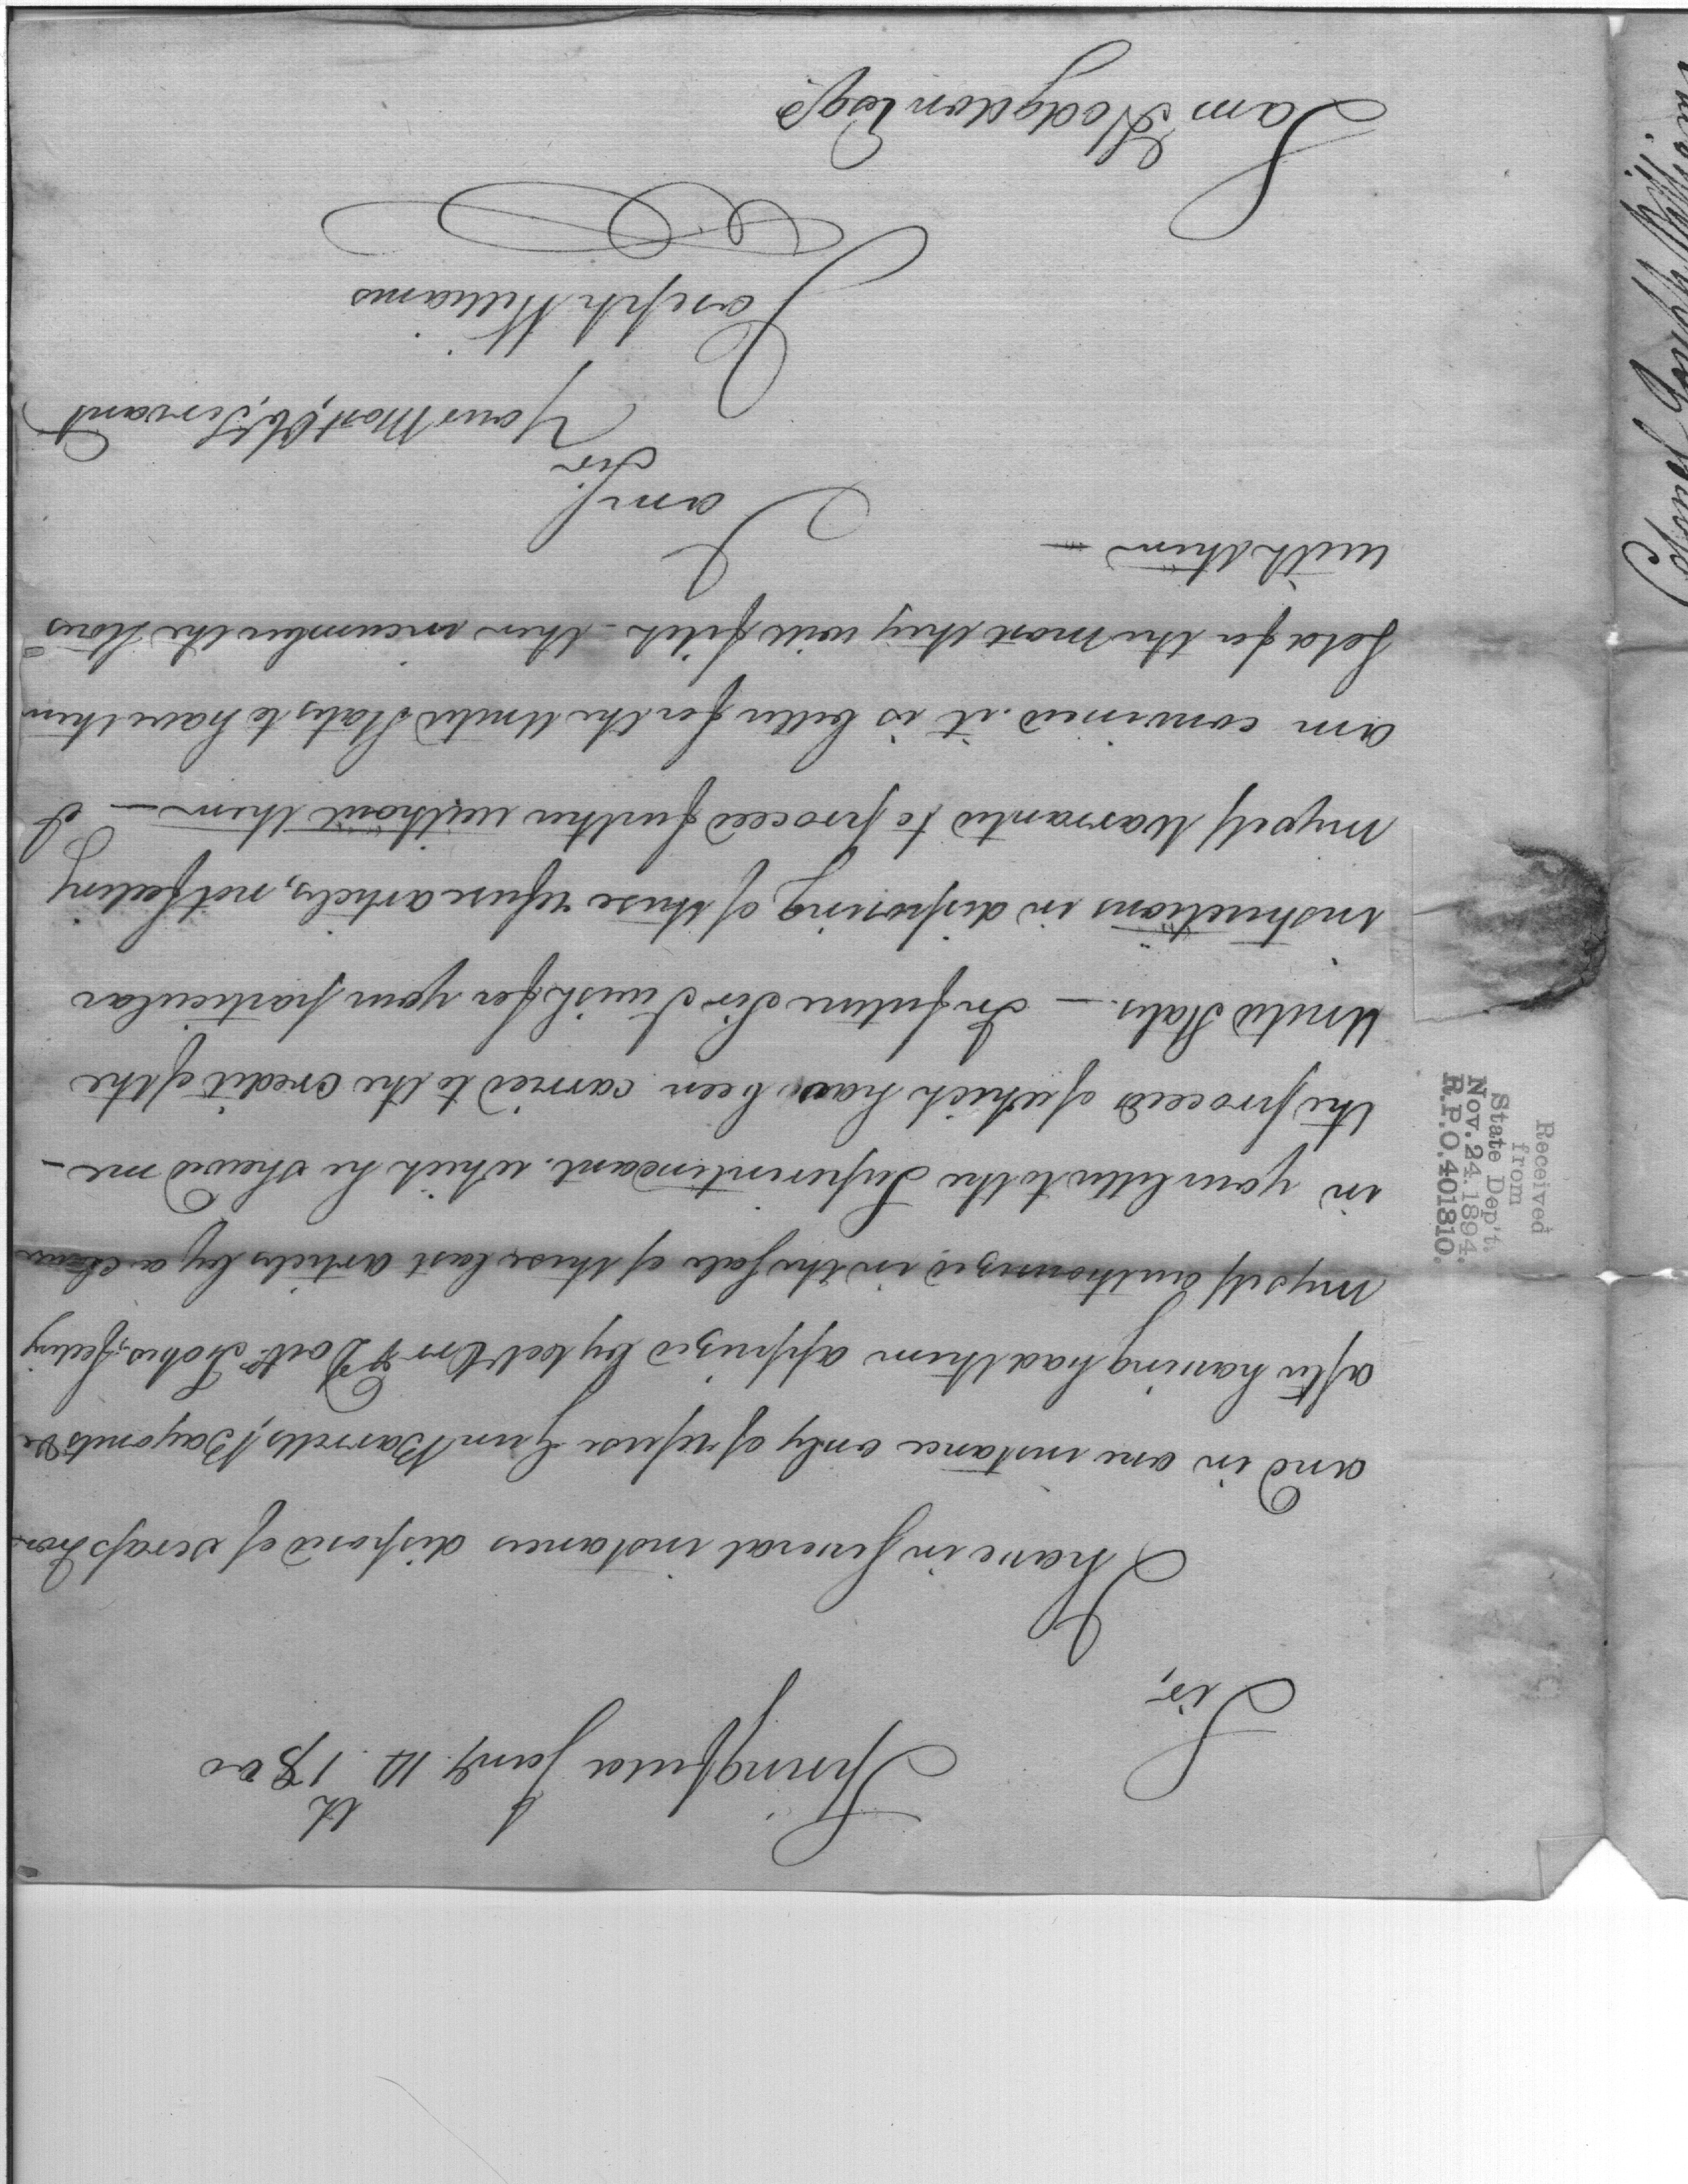 Springfield Jany 14th 1800
Sir,
I have in general instances disposed of scraps Iron
and in one instance only of refuse Gun Barrells, Bayonets &c
after having had them apprized by &
myself authourized in the sale of these last articles by a clause
in your letter to the Superintendant. which he shewed me -
the proceeds of which has been carried to the credit of the
United States. — In future Sir I wish for your particular
instructions in disposing of these refuse articles, not feeling
myself warranted to proceed further without them — I
am convinced. it is better for the United States to have them
sold for the most they will fetch - then incumber the Stores
with them —
I am,
Sir
Your Most, Ob, Servant
Joseph Williams
Sam Hodgdon Esqr
Received
from
State Dep't.
Nov. 24. 1894.
R.P.O. 401810.
Colonel Joseph Williams